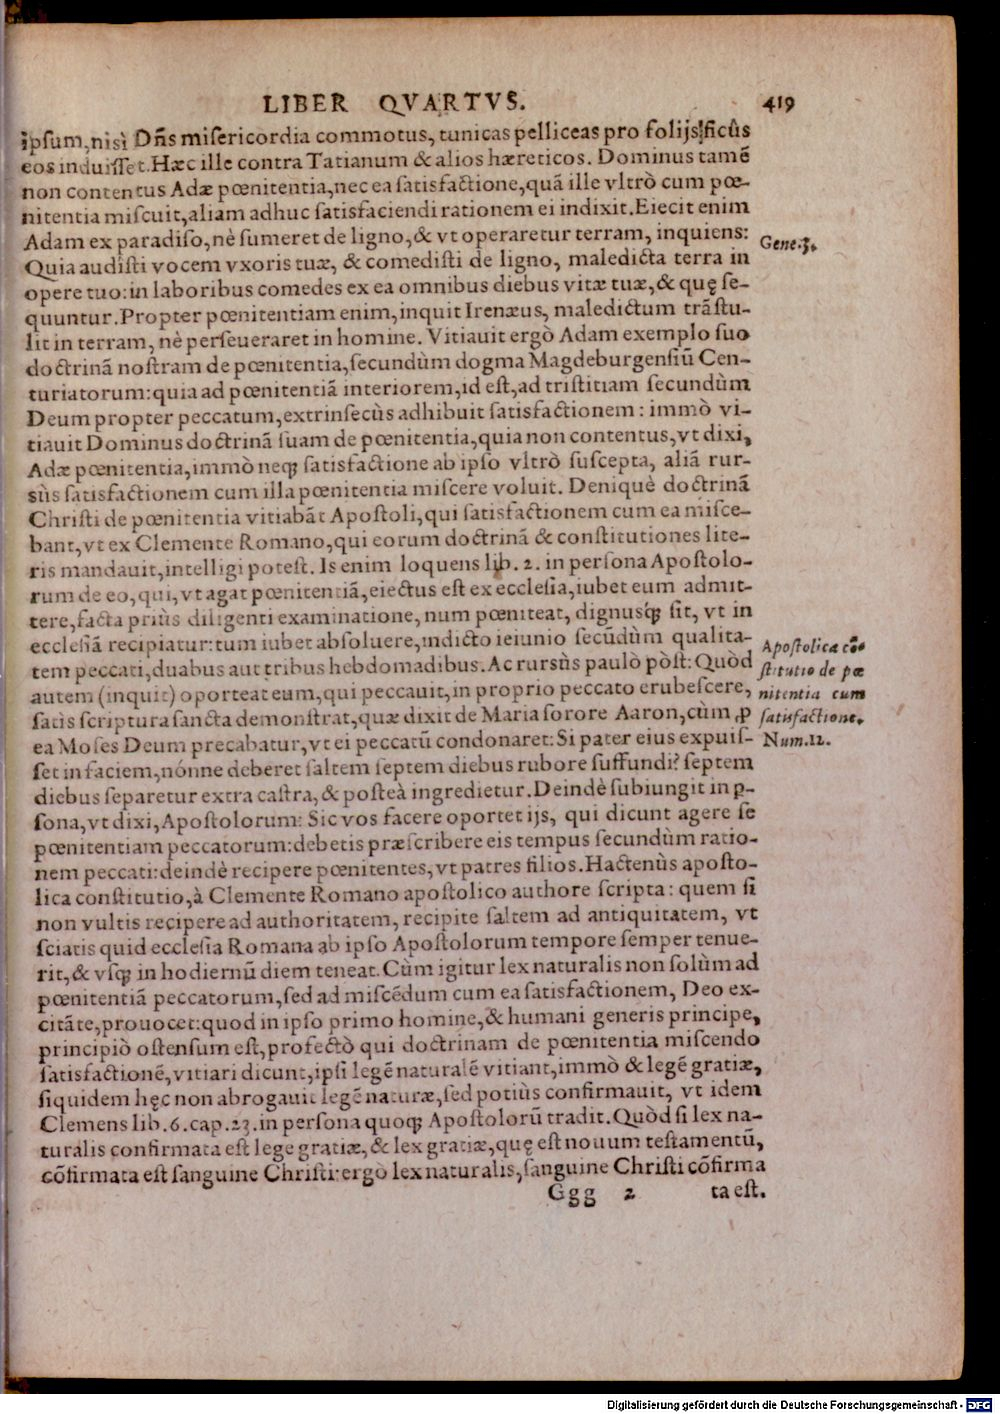 LIBER QVARTVS. 419
ipsum, nisi Dñs misericordia commotus, tunicas pelliceas pro folijs ficûs
eos induisset. Hæc ille contra Tatianum & alios hæreticos. Dominus tamē
non contentus Adæ pœnitentia, nec ea satisfactione, quã ille vltrò cum pœ-
nitentia miscuit, aliam adhuc satisfaciendi rationem ei indixit. Eiecit enim
Adam ex paradiso, nè sumeret de ligno, & vt operaretur terram, inquiens:
Gene. 3.
Quia audisti vocem vxoris tuæ, & comedisti de ligno, maledicta terra in
opere tuo: in laboribus comedes ex ea omnibus diebus vitæ tuæ, & quę se-
quuntur. Propter pœnitentiam enim, inquit Irenæus, maledictum trãstu-
lit in terram, nè perseueraret in homine. Vitiauit ergò Adam exemplo suo
doctrinã nostram de pœnitentia, secundùm dogma Magdeburgensiũ Cen-
turiatorum: quia ad pœnitentiã interiorem, id est, ad tristitiam secundùm
Deum propter peccatum, extrinsecùs adhibuit satisfactionem: immò vi-
tiauit Dominus doctrinã suam de pœnitentia, quia non contentus, vt dixi,
Adæ pœnitentia, immò neq; satisfactione ab ipso vltrò suscepta, aliã rur-
sùs satisfactionem cum illa pœnitentia miscere voluit. Deniquè doctrinã
Christi de pœnitentia vitiabãt Apostoli, qui satisfactionem cum ea misce-
bant, vt ex Clemente Romano, qui eorum doctrinã & constitutiones lite-
ris mandauit, intelligi potest. Is enim loquens lib. 2. in persona Apostolo-
rum de eo, qui, vt agat pœnitentiã, eiectus est ex ecclesia, iubet eum admit-
tere, facta priùs diligenti examinatione, num pœniteat, dignusq; sit, vt in
ecclesiã recipiatur: tum iubet absoluere, indicto ieiunio secũdùm qualita-
tem peccati, duabus aut tribus hebdomadibus. Ac rursùs paulò pòst: Quòd
autem (inquit) oporteat eum, qui peccauit, in proprio peccato erubescere,
satis scriptura sancta demonstrat, quæ dixit de Maria sorore Aaron, cùm ꝓ
Apostolica cõ-
stitutio de pœ
nitentia cum
satisfactione.
Num. 12.
ea Moses Deum precabatur, vt ei peccatũ condonaret: Si pater eius expuis-
set in faciem, nónne deberet saltem septem diebus rubore suffundi? septem
diebus separetur extra castra, & posteà ingredietur. Deindè subiungit in ꝑ-
sona, vt dixi, Apostolorum: Sic vos facere oportet ijs, qui dicunt agere se
pœnitentiam peccatorum: debetis præscribere eis tempus secundùm ratio-
nem peccati: deindè recipere pœnitentes, vt patres filios. Hactenùs aposto-
lica constitutio, à Clemente Romano apostolico authore scripta: quem si
non vultis recipere ad authoritatem, recipite saltem ad antiquitatem, vt
sciatis quid ecclesia Romana ab ipso Apostolorum tempore semper tenue-
rit, & vsq; in hodiernũ diem teneat. Cùm igitur lex naturalis non solùm ad
pœnitentiã peccatorum, sed ad miscẽdum cum ea satisfactionem, Deo ex-
citãte, prouocet: quod in ipso primo homine, & humani generis principe,
principiò ostensum est, profectò qui doctrinam de pœnitentia miscendo
satisfactionẽ, vitiari dicunt, ipsi legẽ naturalẽ vitiant, immò & legẽ gratiæ,
siquidem hęc non abrogauit legẽ naturæ, sed potiùs confirmauit, vt idem
Clemens lib. 6. cap. 23. in persona quoq; Apostolorũ tradit. Quòd si lex na-
turalis confirmata est lege gratiæ, & lex gratiæ, quę est nouum testamentũ,
cõfirmata est sanguine Christi: ergò lex naturalis, sanguine Christi cõfirma
Ggg 2 ta est.
Digitalisierung gefördert durch die Deutsche Forschungsgemeinschaft - DFG